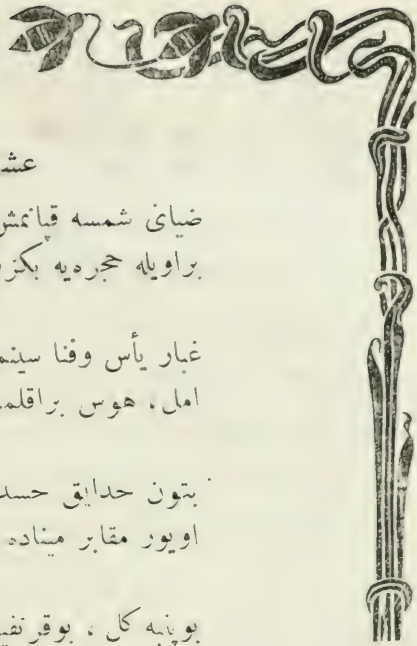 عشـ
ضیای شمسه قپانمش
براویله حجره‌یه بکزر
غبار یأس وفنا سینم
امل، هوس براقلمـ
بتون حدایق حسد
اویور مقابر میناده
بو پنبه کل، بوقرنفیـ